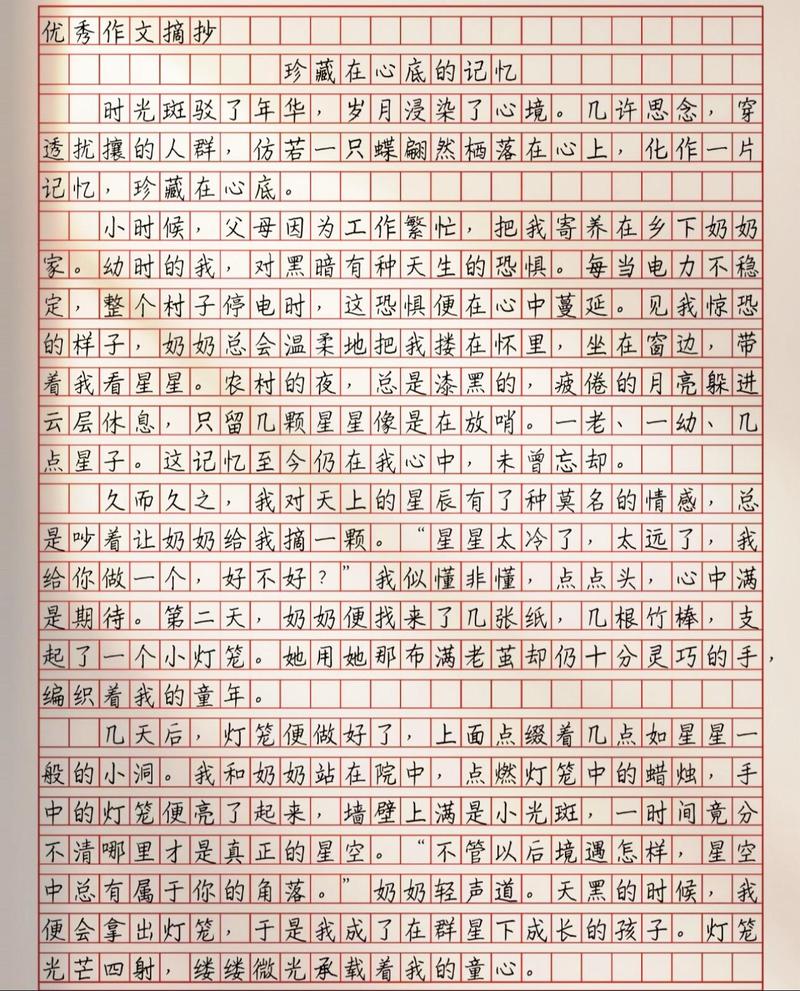 优秀作文摘抄
珍藏在心底的记忆
时光斑驳了年华，岁月浸染了心境。几许思念，穿
透扰攘的人群，仿若一只蝶翩然栖落在心上，化作一片
记忆，珍藏在心底。
小时候，父母因为工作繁忙，把我寄养在乡下奶奶
家。幼时的我，对黑暗有种天生的恐惧。每当电力不稳
定，整个村子停电时，这恐惧便在心中蔓延。见我惊恐
的样子，奶奶总会温柔地把我搂在怀里，坐在窗边，带
着我看星星。农村的夜，总是漆黑的，疲倦的月亮躲进
云层休息，只留几颗星星像是在放哨。一老、一幼、几
点星子。这记忆至今仍在我心中，未曾忘却。
久而久之，我对天上的星辰有了种莫名的情感，总
是吵着让奶奶给我摘一颗。“星星太冷了，太远了，我
给你做一个，好不好？”我似懂非懂，点点头，心中满
是期待。第二天，奶奶便找来了几张纸，几根竹棒，支
起了一个小灯笼。她用她那布满老茧却仍十分灵巧的手，
编织着我的童年。
几天后，灯笼便做好了，上面点缀着几点如星星一
般的小洞。我和奶奶站在院中，点燃灯笼中的蜡烛，手
中的灯笼便亮了起来，墙壁上满是小光斑，一时间竟分
不清哪里才是真正的星空。“不管以后境遇怎样，星空
中总有属于你的角落。”奶奶轻声道。天黑的时候，我
便会拿出灯笼，于是我成了在群星下成长的孩子。灯笼
光芒四射，缕缕微光承载着我的童心。